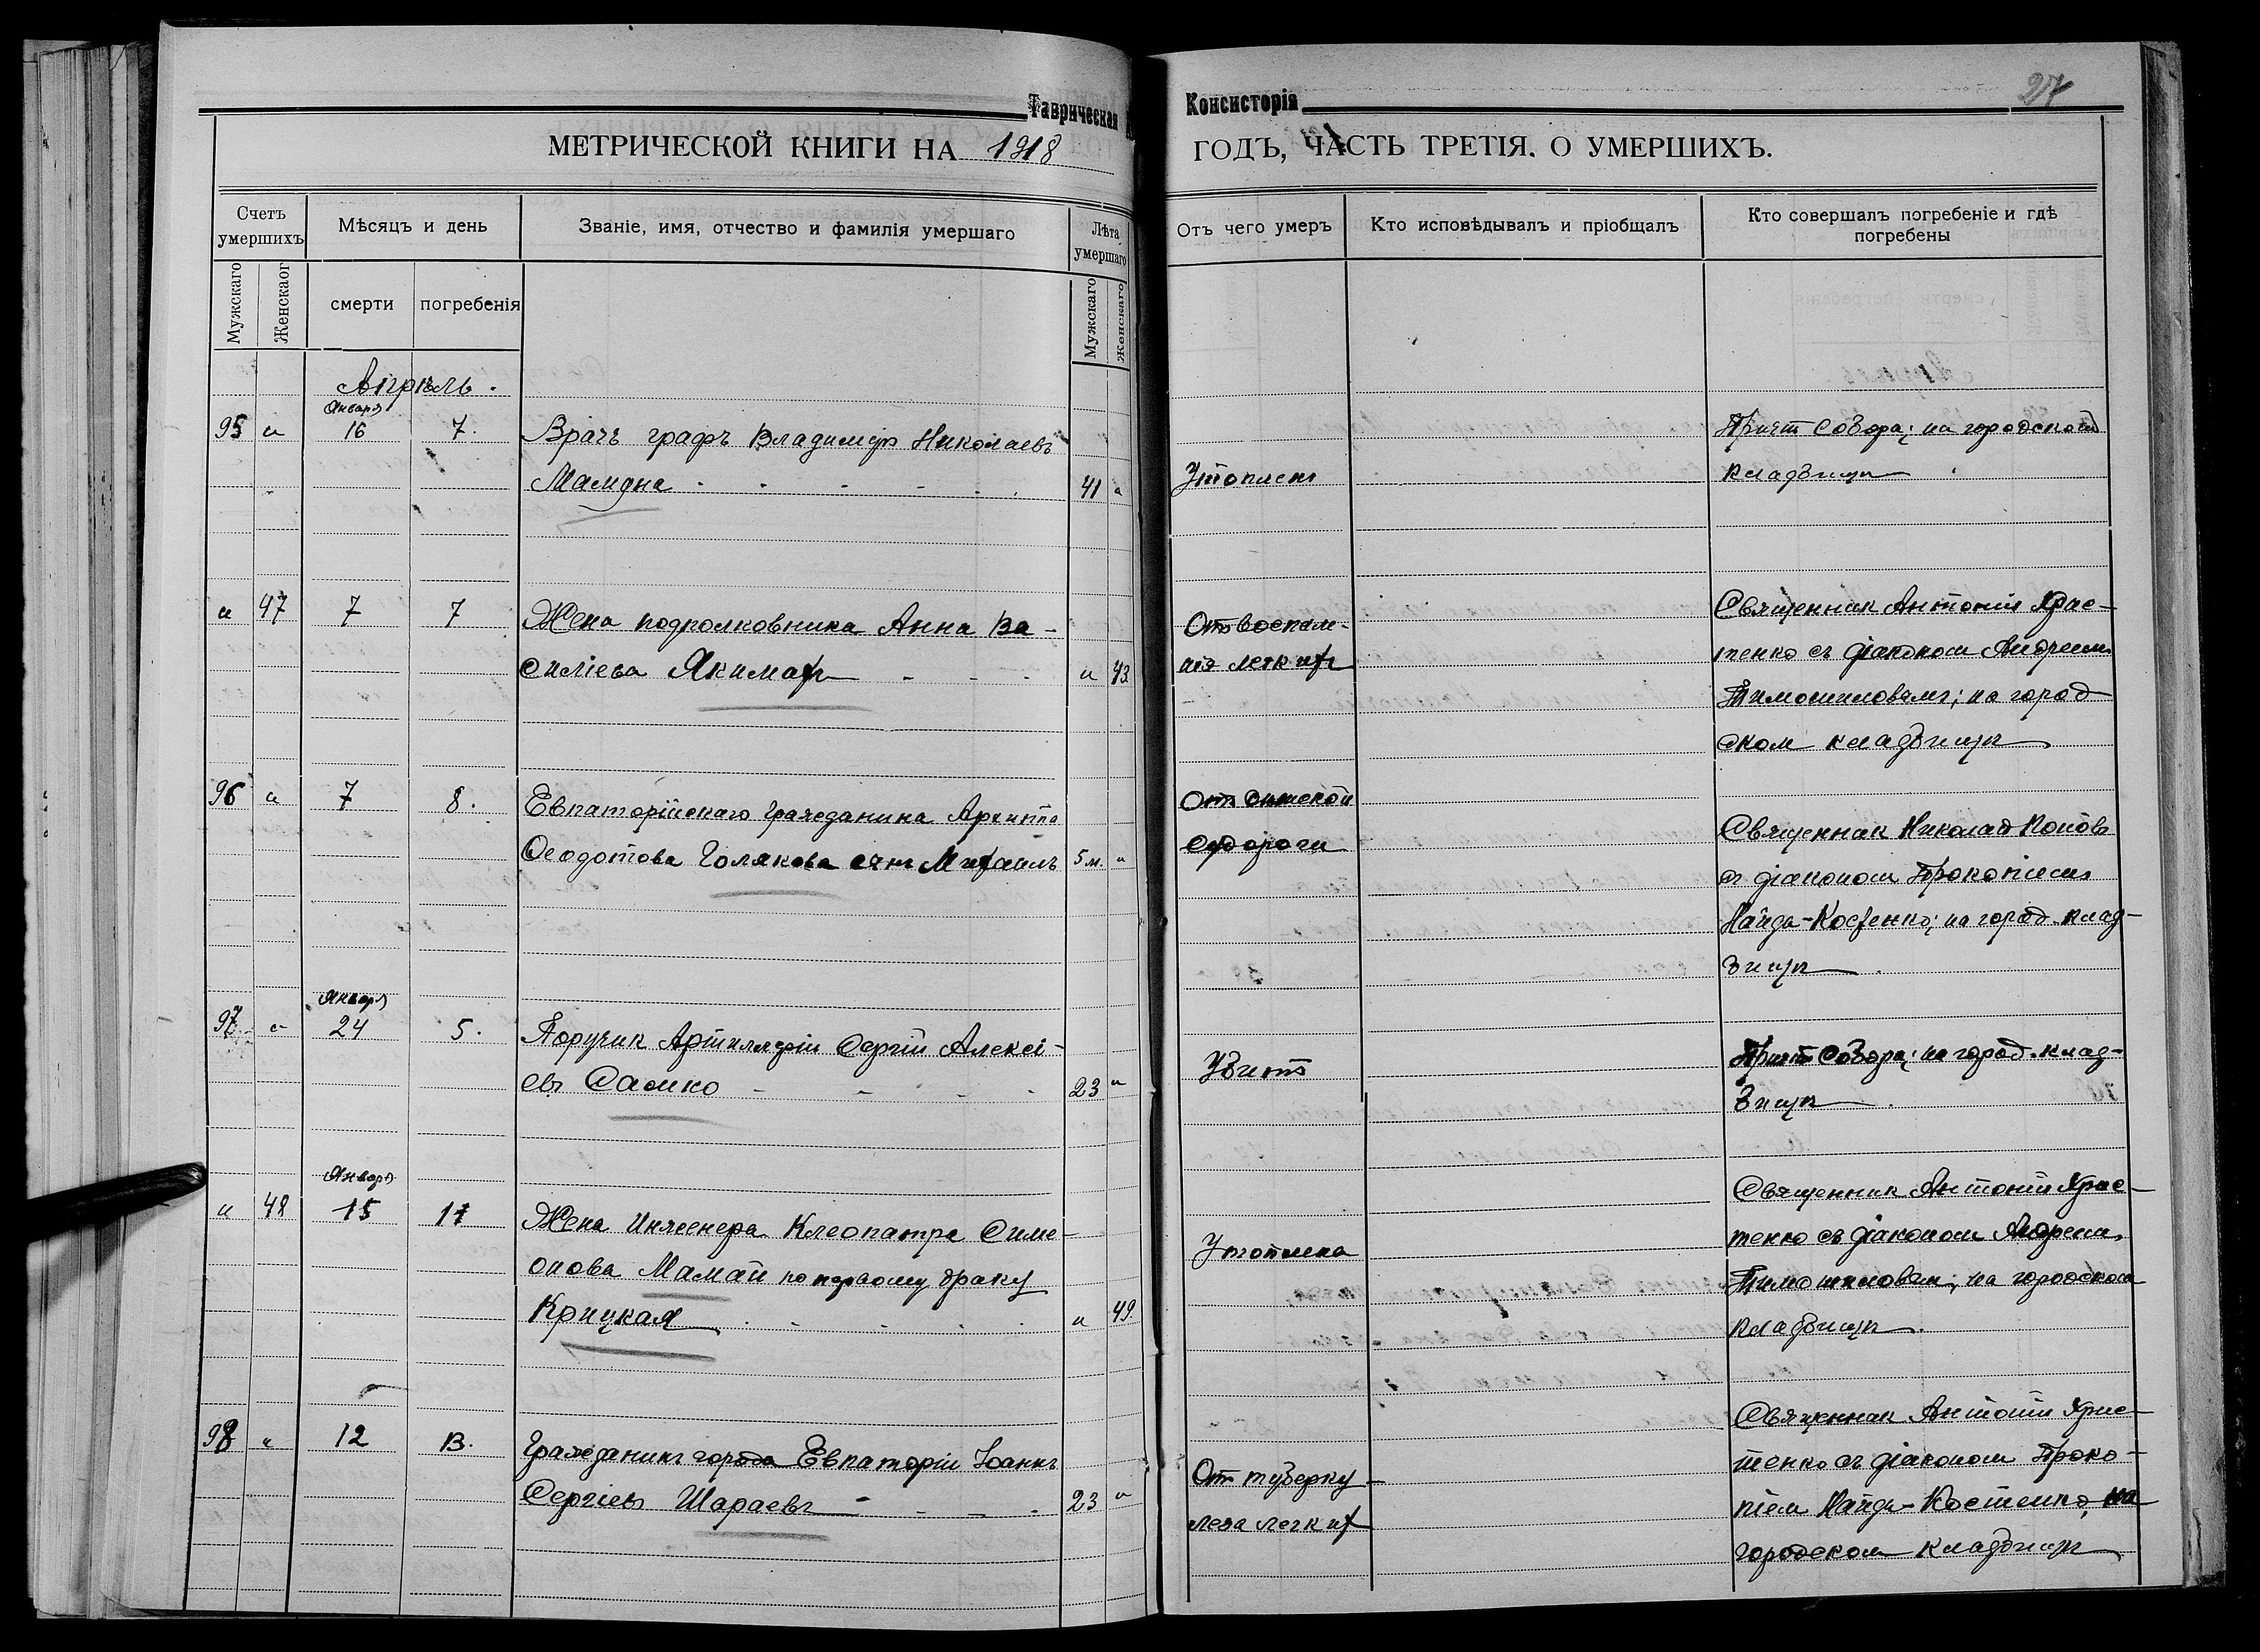 Таврическая Консисторія
27
МЕТРИЧЕСКОЙ КНИГИ НА 1918 ГОДЪ, ЧАСТЬ ТРЕТІЯ. О УМЕРШИХЪ.
Счетъ умершихъ
Мѣсяцъ и день
Званіе, имя, отчество и фамилія умершаго
Лѣта умершаго
Отъ чего умеръ
Кто исповѣдывалъ и пріобщалъ
Кто совершалъ погребеніе и гдѣ погребены
Мужскаго
Женскаог
смерти
погребенія
Мужскаго
Женскаго
Апрѣль.
Января
95 " 16 7. Врачъ графъ Владимиръ Николаевъ
Мамуна 41 "
Утопленъ
Причт Собора; на городскомъ
кладбищѣ
" 47 7 7 Жена подполковника Анна Ва-
силіева Якимахъ " 43
Отъ воспале-
нія легкихъ
Священник Антоній Хрис-
тенко съ діакономъ Андреемъ
Тимошиловымъ; на город
ском кладбищѣ
96 " 7 8. Евпаторійскаго гражданина Архиппа
Ѳеодотова Голякова сынъ Михаилъ 5 м. "
Отъ дѣтской
судороги
Священник Николай Поповъ
съ діаконом Прокопіемъ
Найда-Костенко; на город. клад-
бищѣ.
Января
97 " 24 5. Поручик Артиллеріи Сергій Алексі-
евъ Саліко 23 "
Убитъ
Причт Собора; на город. клад-
бищѣ.
Января
" 48 15 11 Жена Инженера Клеопатра Симе-
онова Мамай по первому браку
Крицкая " 49.
Утоплена
Священник Антоній Хрис-
тенко съ діаконом Андреем
Тимошиловым; на городском
кладбищѣ.
98 " 12 13. Гражданинъ города Евпаторіи Іоаннъ
Сергіевъ Шараевъ 23 "
Отъ туберку-
леза легких
Священник Антоній Хрис-
тенко съ діаконом Проко-
піем Найда-Костенко, на
городском кладбищѣ